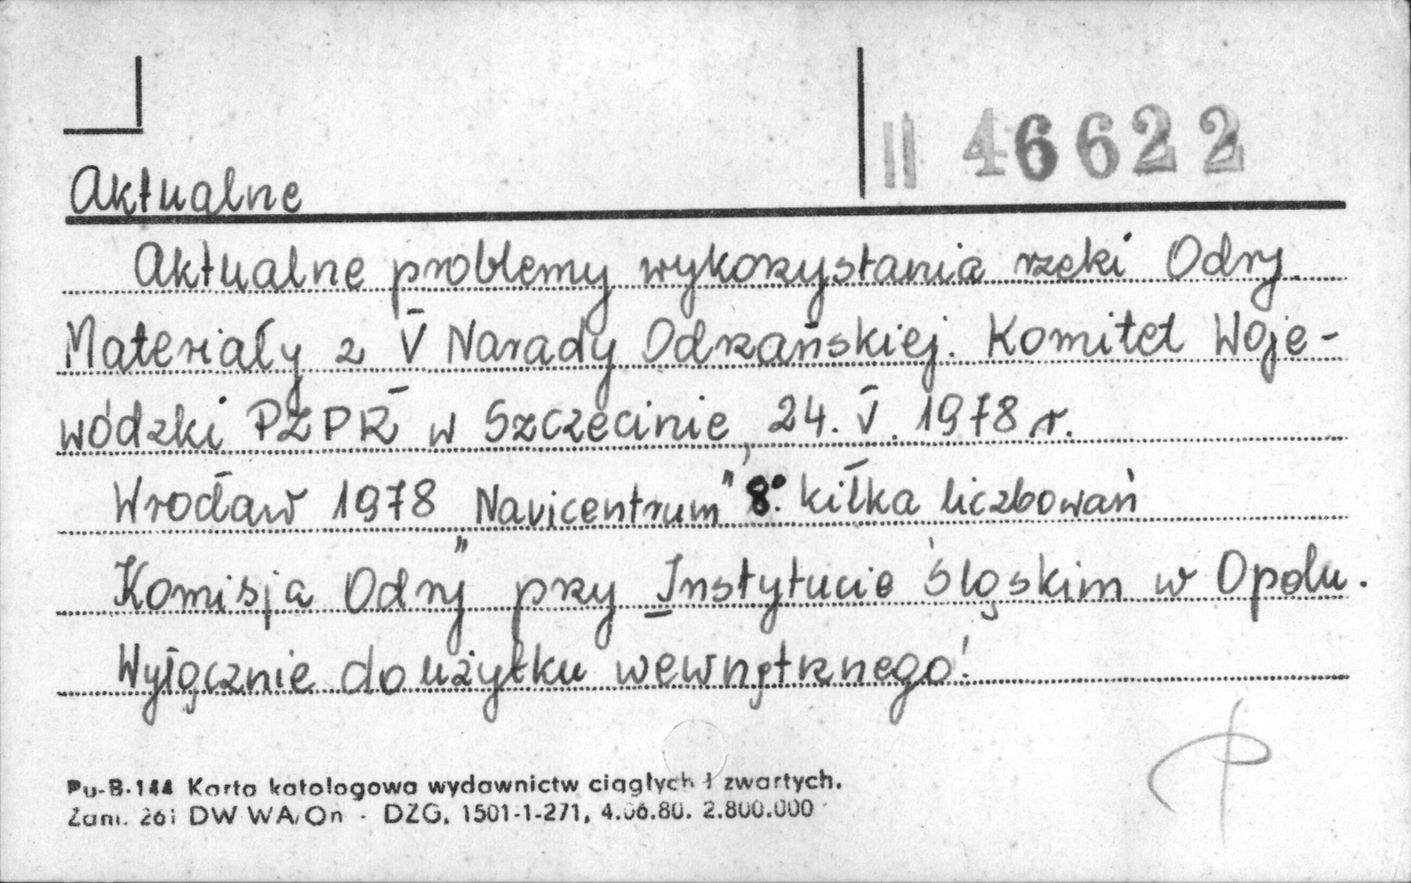 II 46622
Aktualne
Aktualne problemy wykorzystania rzeki Odry.
Materiały z V Narady Odrzańskiej. Komitet Woje-
wódzki PZPR w Szczecinie, 24. V. 1978 r.
Wrocław 1978 "Navicentrum" 8°. kilka liczbowań
Komisja Odry" przy Instytucie Śląskim w Opolu.
Wyłącznie do użytku wewnętrznego!
Pu-B-144 Karta katalogowa wydawnictw ciągłych i zwartych.
Zam. 261 DW WA/On - DZG, 1501-1-271, 4.06.80. 2.800.000